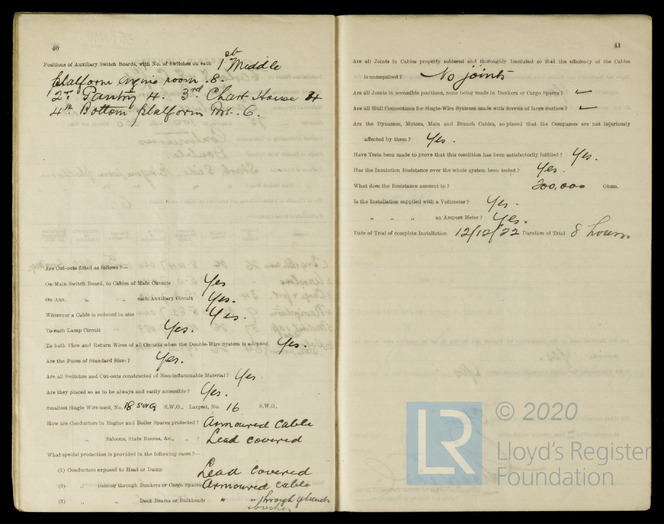 40
Positions of Auxiliary Switch Boards, with No. of Switches on each 1st Middle
platform engine room 8.
2nd Pantry 4. 3rd Chart House 4
4th Bottom platform 6.
Are Cut-outs fitted as follows?—
On Main Switch Board, to Cables of Main Circuits Yes
On Aux. " " each Auxiliary Circuit Yes.
Wherever a Cable is reduced in size Yes.
To each Lamp Circuit Yes.
To both Flow and Return Wires of all Circuits when the Double-Wire System is adopted Yes.
Are the Fuses of Standard Size? Yes.
Are all Switches and Cut-outs constructed of Non-inflammable Material? Yes
Are they placed so as to be always and easily accessible? Yes.
Smallest Single Wire used, No. 18 SWG S.W.G., Largest, No. 16 S.W.G.
How are Conductors in Engine and Boiler Spaces protected? Armoured Cable
" Saloons, State Rooms, &c., " ? Lead covered
What special protection is provided in the following cases?—
(1) Conductors exposed to Heat or Damp Lead covered
(2) " passing through Bunkers or Cargo Spaces Armoured Cable
(3) " " Deck Beams or Bulkheads " " through glands
bushes
41
Are all Joints in Cables properly soldered and thoroughly insulated so that the efficiency of the Cables
is unimpaired? No joints
Are all Joints in accessible positions, none being made in Bunkers or Cargo Spaces? ✓
Are all Hull Connections for Single-Wire Systems made with Screws of large Surface? ✓
Are the Dynamos, Motors, Main and Branch Cables, so placed that the Compasses are not injuriously
affected by them? Yes.
Have Tests been made to prove that this condition has been satisfactorily fulfilled? Yes.
Has the Insulation Resistance over the whole system been tested? Yes.
What does the Resistance amount to? 200,000 Ohms.
Is the Installation supplied with a Voltmeter? Yes.
" " " an Ampere Meter? Yes.
Date of Trial of complete Installation 12/12/22 Duration of Trial 8 hours
© 2020
LR
Lloyd's Register
Foundation